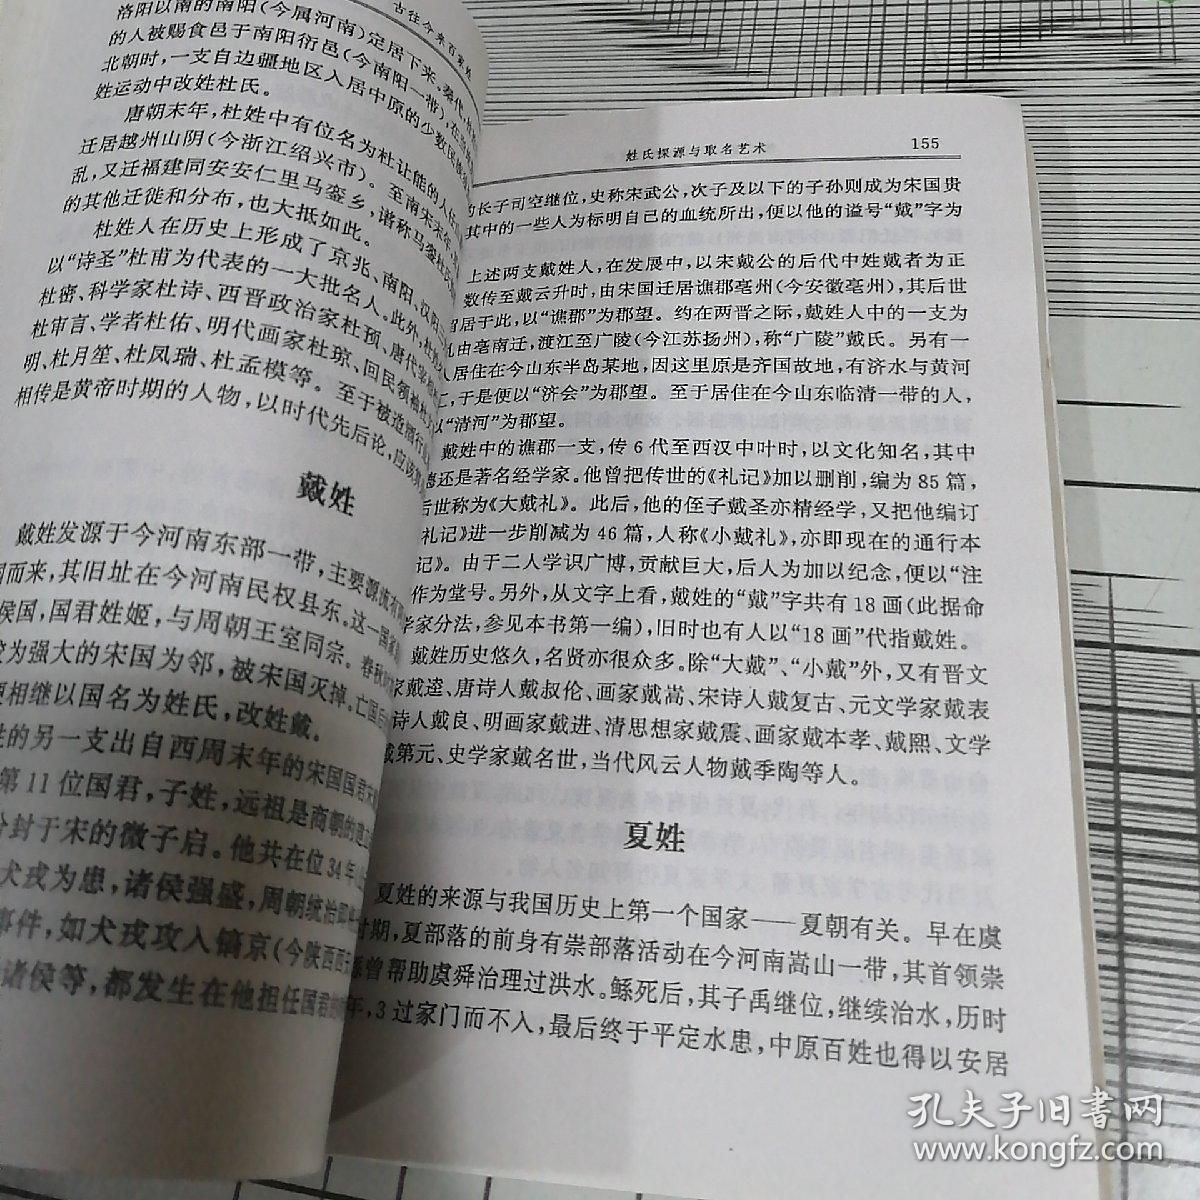 古往今来百家姓
洛阳以南的南阳(今属河南)定居下来。秦代,
的人被赐食邑于南阳衍邑(今南阳一带),在
北朝时,一支自边疆地区入居中原的少数民族
姓运动中改姓杜氏。
唐朝末年,杜姓中有位名为杜让能的人任
迁居越州山阴(今浙江绍兴市)。至南宋末年,
乱,又迁福建同安安仁里马銮乡,谱称马銮杜氏
的其他迁徙和分布,也大抵如此。
杜姓人在历史上形成了京兆、南阳、汉阳
以“诗圣”杜甫为代表的一大批名人。此外,
杜密、科学家杜诗、西晋政治家杜预、唐代宰相
杜审言、学者杜佑、明代画家杜琼、回民领袖杜
明、杜月笙、杜凤瑞、杜孟模等。至于被造酒行
相传是黄帝时期的人物,以时代先后论,应该
戴姓
戴姓发源于今河南东部一带,主要源流有
而来,其旧址在今河南民权县东。这一国家
侯国,国君姓姬,与周朝王室同宗。春秋
较为强大的宋国为邻,被宋国灭掉。亡国后
相继以国名为姓氏,改姓戴。
姓的另一支出自西周末年的宋国国君宋
第11位国君,子姓,远祖是商朝的建立
分封于宋的微子启。他共在位34年
犬戎为患,诸侯强盛,周朝统治
事件,如犬戎攻入镐京(今陕西西
诸侯等,都发生在他担任国君
姓氏探源与取名艺术 155
的长子司空继位,史称宋武公,次子及以下的子孙则成为宋国贵
其中的一些人为标明自己的血统所出,便以他的谥号“戴”字为
上述两支戴姓人,在发展中,以宋戴公的后代中姓戴者为正
数传至戴云升时,由宋国迁居谯郡亳州(今安徽亳州),其后世
居于此,以“谯郡”为郡望。约在两晋之际,戴姓人中的一支为
乱由亳南迁,渡江至广陵(今江苏扬州),称“广陵”戴氏。另有一
人居住在今山东半岛某地,因这里原是齐国故地,有济水与黄河
,于是便以“济会”为郡望。至于居住在今山东临清一带的人,
以“清河”为郡望。
戴姓中的谯郡一支,传6代至西汉中叶时,以文化知名,其中
德还是著名经学家。他曾把传世的《礼记》加以删削,编为85篇,
后世称为《大戴礼》。此后,他的侄子戴圣亦精经学,又把他编订
礼记》进一步削减为46篇,人称《小戴礼》,亦即现在的通行本
记》。由于二人学识广博,贡献巨大,后人为加以纪念,便以“注
作为堂号。另外,从文字上看,戴姓的“戴”字共有18画(此据命
学家分法,参见本书第一编),旧时也有人以“18画”代指戴姓。
戴姓历史悠久,名贤亦很众多。除“大戴”、“小戴”外,又有晋文
家戴逵、唐诗人戴叔伦、画家戴嵩、宋诗人戴复古、元文学家戴表
诗人戴良、明画家戴进、清思想家戴震、画家戴本孝、戴熙、文学
戴第元、史学家戴名世,当代风云人物戴季陶等人。
夏姓
夏姓的来源与我国历史上第一个国家——夏朝有关。早在虞
时期,夏部落的前身有崇部落活动在今河南嵩山一带,其首领崇
鲧曾帮助虞舜治理过洪水。鲧死后,其子禹继位,继续治水,历时
年,3过家门而不入,最后终于平定水患,中原百姓也得以安居
孔夫子旧书网
www.kongfz.com